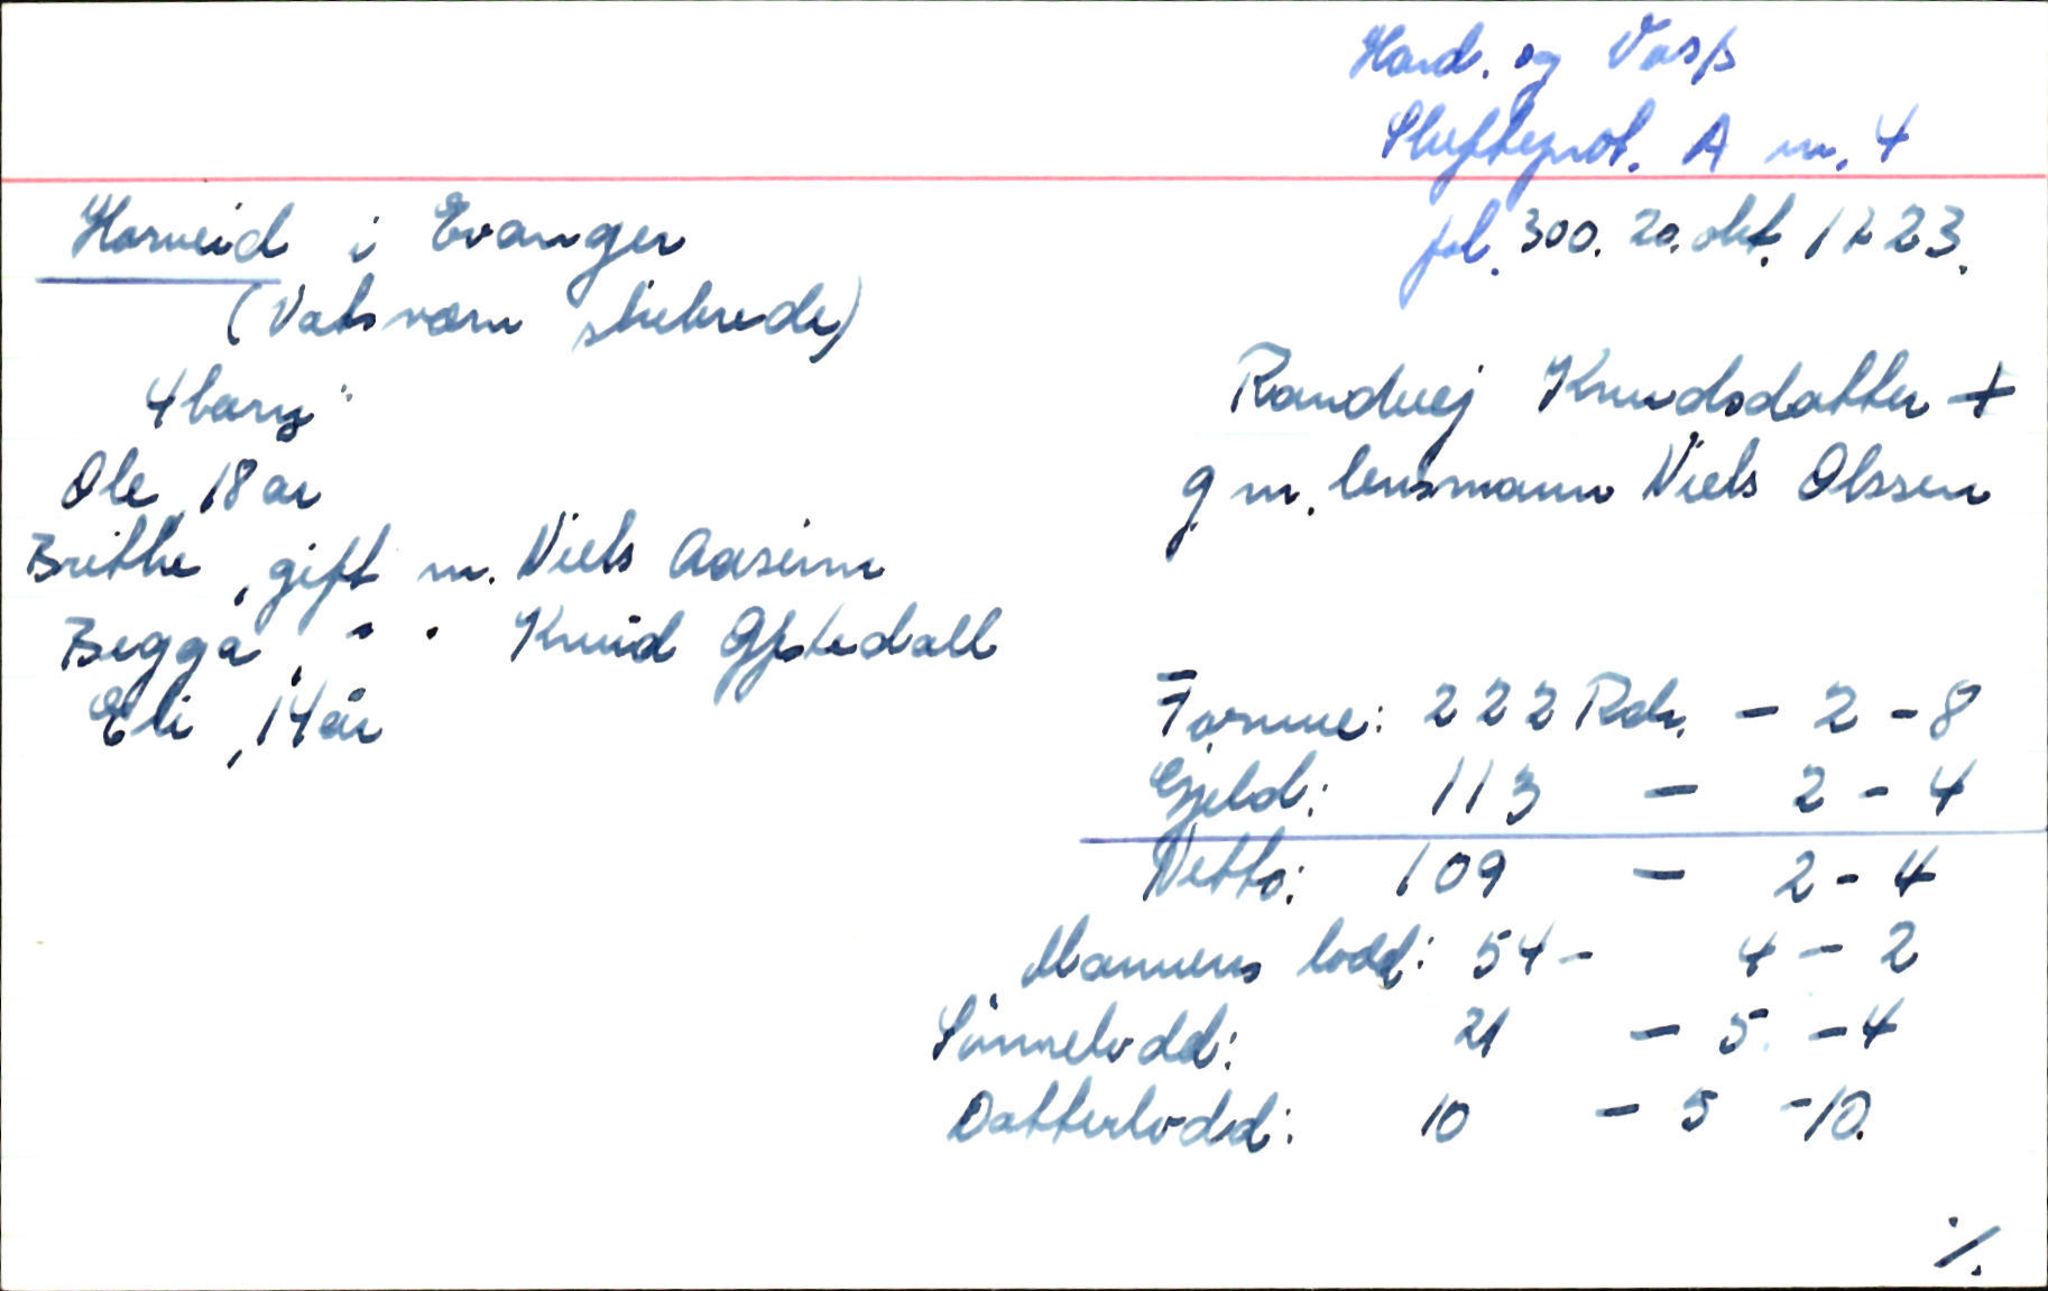 Hard. og Voss
Skifteprot. A nr. 4
fol. 300. 20. okt. 1723.
Horveid i Evanger
(Vatsvøru skibrede)
4 barn:
Ole, 18 år
Brithe, gift m. Niels Aaseim
Begga, " " Knud Gjstedall
Eli, 14 år
Randvej Knudsdatter +
g. m. lensmann Niels Olssen
Formue: 222 Rdr. - 2 - 8
Gjeld: 113 - 2 - 4
Netto: 109 - 2 - 4
Mannens lodd: 54 - 4 - 2
Sønnelodd: 21 - 5 - 4
Datterlodd: 10 - 5 - 10.
./.